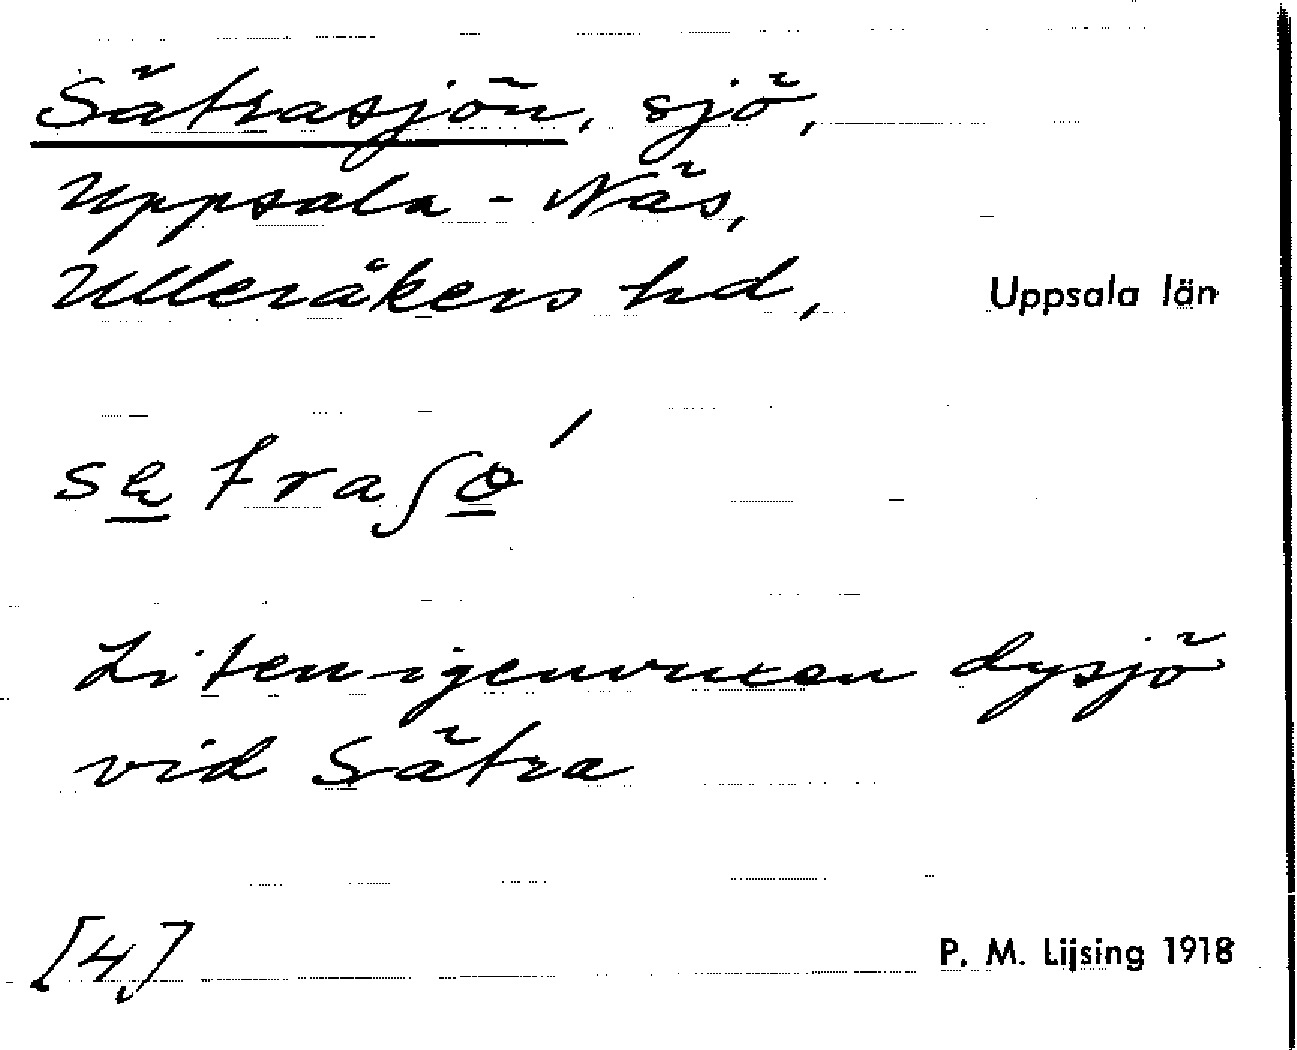 Sätrasjön, sjö,
Uppsala-Näs,
Ulleråkers hd, Uppsala län
Liten igenvuxen dysjö
vid Sätra
[4] P. M. Lijsing 1918